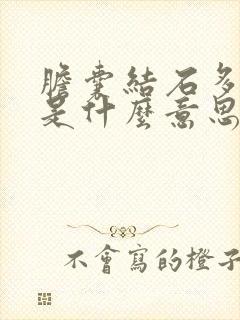 膽囊結石多
是什麼意思
不會寫的橙子